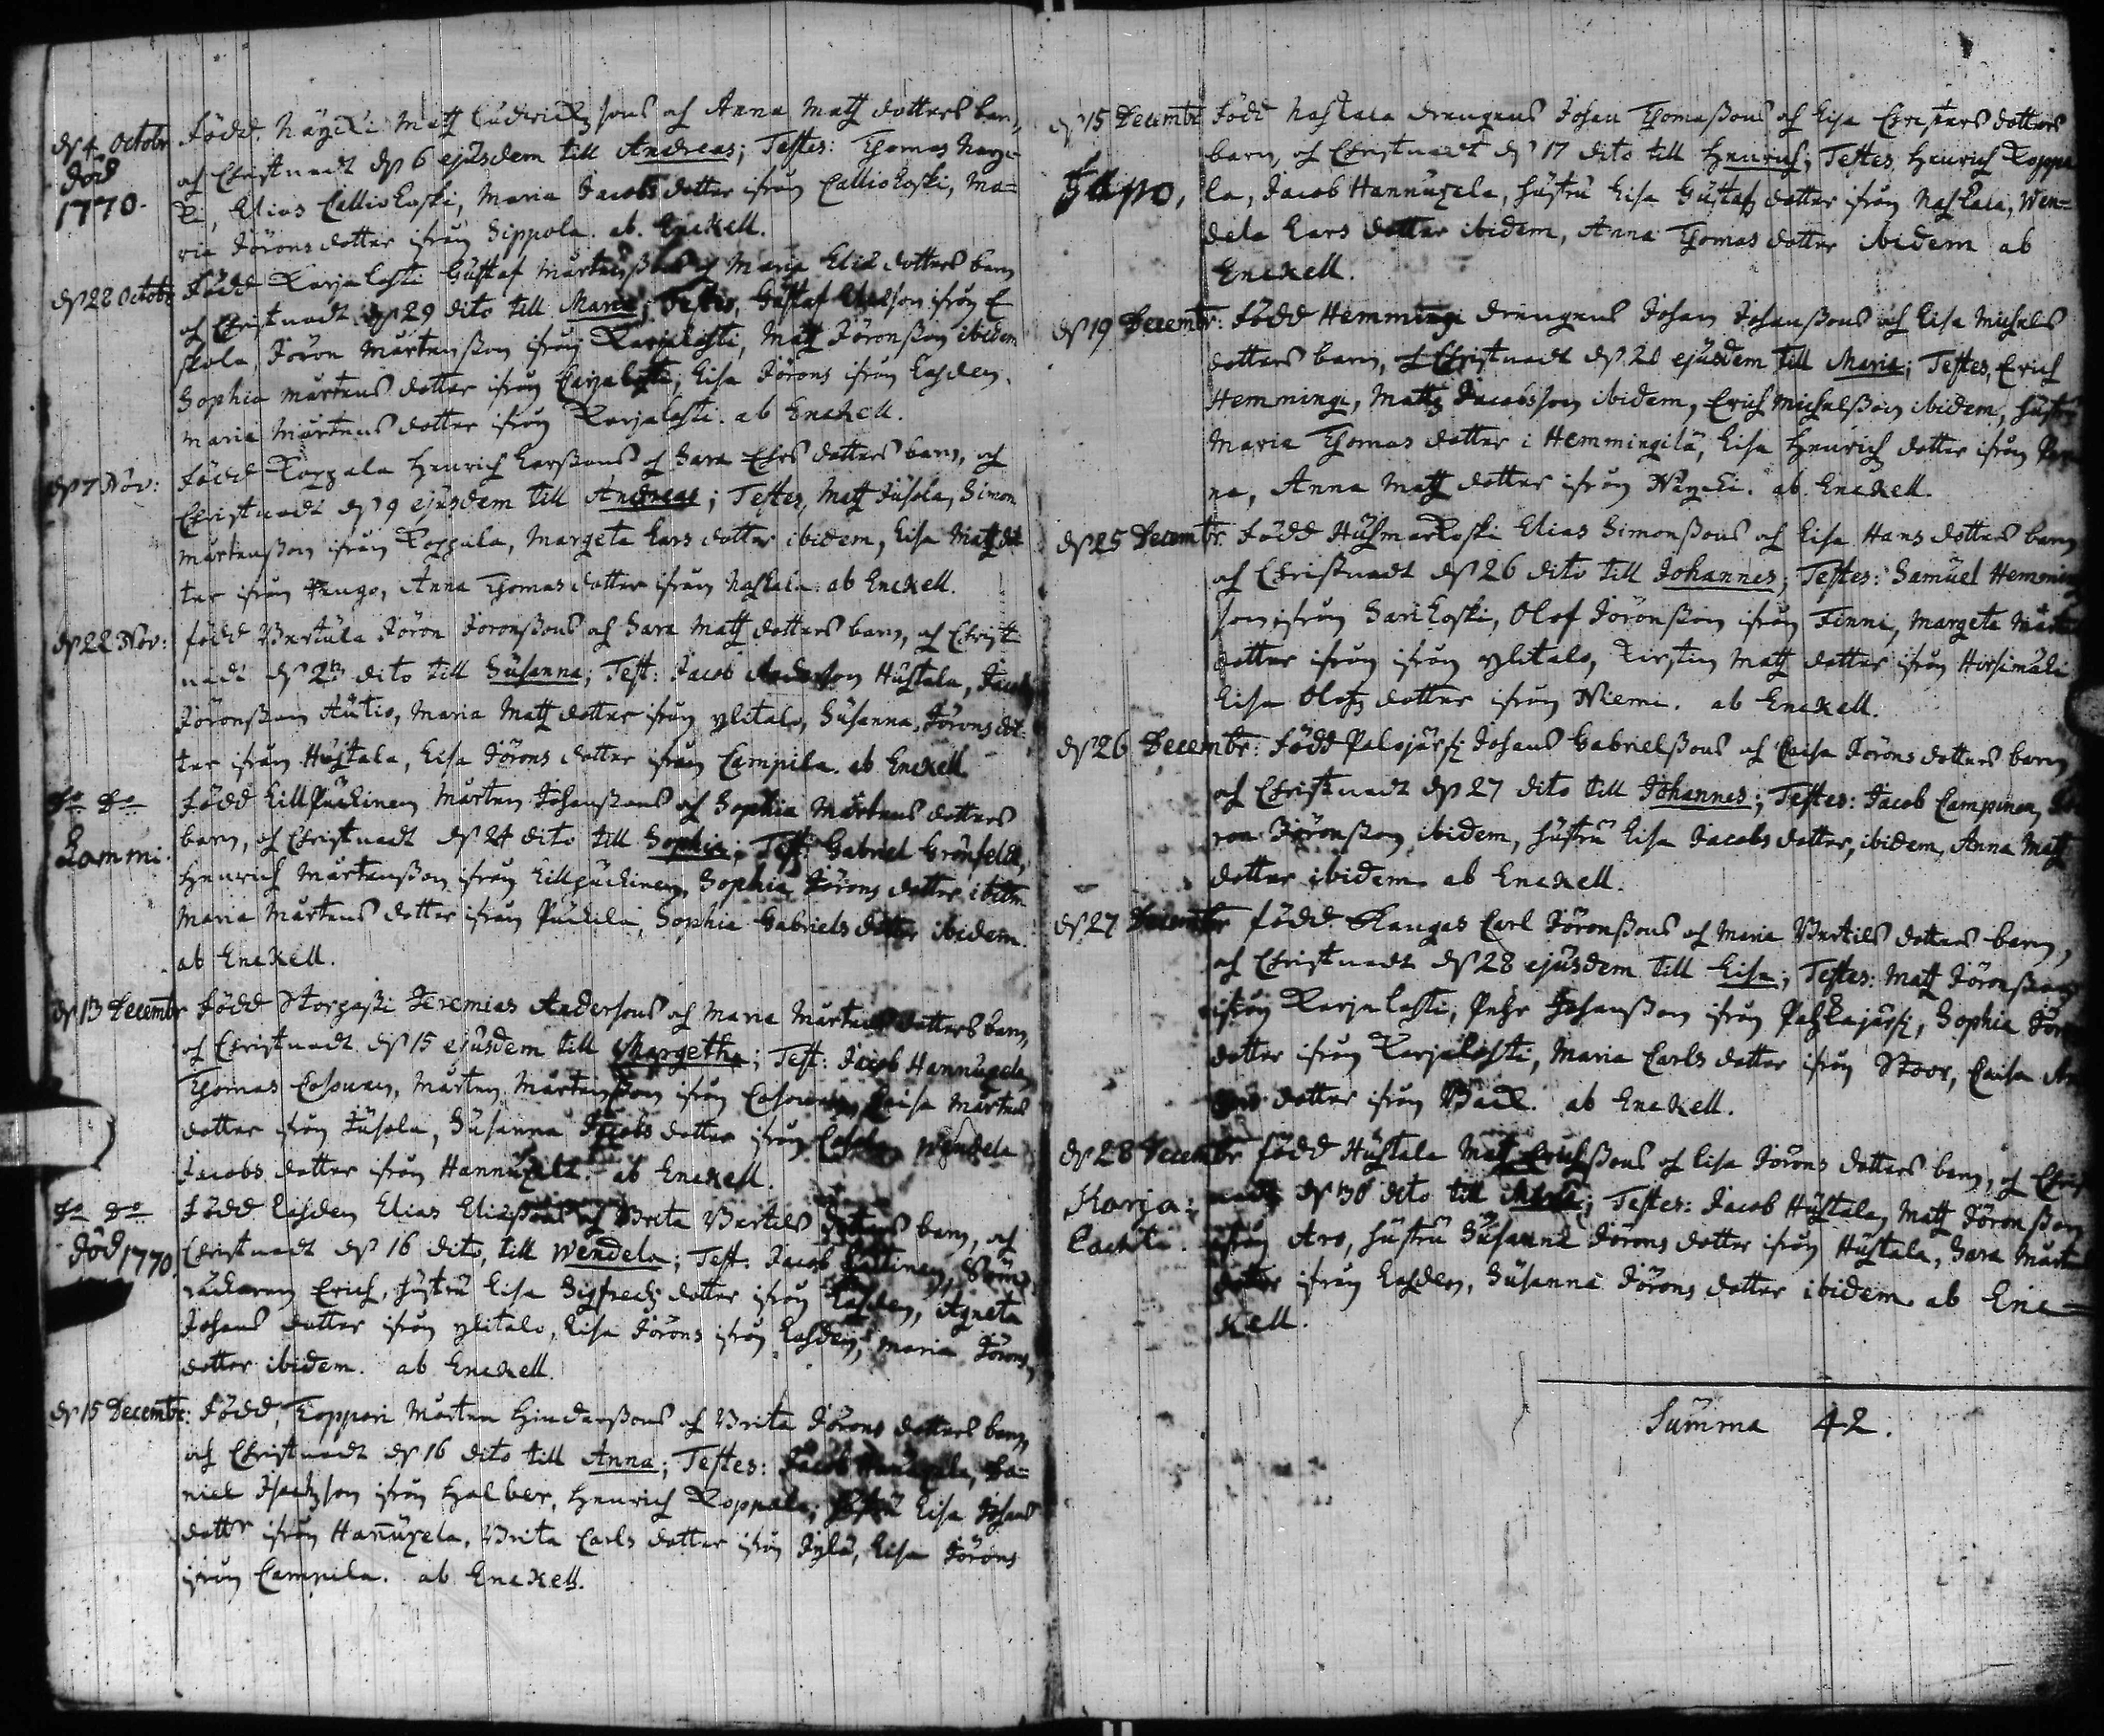 dȷ 4 Octobr. Född Näycki Matz Ludrichzsons och Anna Matz dotters barn,
död och Christnadt dȷ 6 ejusdem till Andreas; Testes: Thomas Näyc-
1770. ki, Elias Calliokoski, Maria Jacobs dotter ifrån Calliokoski, Ma-
ria Jörons dotter ifrån Sippola. ab. Enckell.
dȷ 28 Octobr Född Karjalahti Gustaf Mårtensßons och Maria Eliæ dotters barn
och Christnadt dȷ 29 dito till Maria; Testes, Gustaf ifrån
skola, Jöron Mårtensßon ifrån Karjalahti, Matz Jöronßon ibidem
Sophia Mårtens dotter ifrån Carjalahti, Lisa Jörons ifrån Lahden,
Maria Mårtens dotter ifrån Karjalahti. ab Enckell.
dȷ 7 Nov: Född Koppala Henrich Larßons och Sara dotters barn, och
Christnadt dȷ 9 ejusdem till Andreas; Testes, Matz Jusola, Simon
Mårtensßon ifrån Koppala, Margeta Lars dotter ibidem, Lisa Matz dot
ter ifrån, Anna Thomas dotter ifrån Nahkala. ab Enckell.
dȷ 22 Nov: född Bertula Jöron Jöronßons och Sara Matz dotters barn, och Christ-
nadt dȷ 23 dito till Susanna; Test: Jacob Anderson Huhtala, Jacob
Jöronßon Autio, Maria Matz dotter ifrån ylitalo, Susanna Jörons dot-
ter ifrån Huhtala, Lisa Jörons dotter ifrån Campila. ab Enckell
Do Do Född Lillpuckinen Mårten Johanßons och Sophia Mårtens dotters
Lammi. barn, och Christnadt dȷ 24 dito till Sophia; Test: Gabriel Grönfeldt,
Henrich Mårtensßon ifrån Lillpuckinen, Sophia Jörons dotter ibidem
Maria Mårtens dotter ifrån Puckila, Sophia Gabriels dotter ibidem
ab Enckell.
dȷ 13 Decembr Född Storpasi Jeremias Andersons och Maria Mårtens dotters barn,
och Christnadt dȷ 15 ejusdem till Margetha; Test: Jacob Hannugela,
Thomas Casouren, Mårten Mårtensßon ifrån Lisa Mårtens
dotter ifrån Jusola, Susanna Jacobs dotter ifrån Wendela
Jacobs dotter ifrån Hannugela. ab Enckell.
Do Do Född Lahden Elias Eliæßons och Brita Bertils dotters barn, och
död 1770. Christnadt dȷ 16 dito, till Wendela; Test. Jacob
Erich, hustru Lisa Sigfredz dotter ifrån Lahden, Agneta
Johans dotter ifrån ylitalo, Lisa Jörons ifrån Lahden, Maria Jörons
dotter ibidem. ab Enckell.
dȷ 15 Decembr: Född, Toppari Mårten Hindersßons och Brita Jörons dotters barn,
och Christnadt dȷ 16 dito till Anna; Testes: Jacob Hanugela, Da-
niel Isachson ifrån Halber, Henrich Koppala, hustru Lisa Johans
dottr ifrån Hañugela, Brita Carls dotter ifrån Jylä, Lisa Jörons
ifrån Campila. ab Enckell.
dȷ 15 Decembr Född Nahkala drengens Johan Thomasßons och Lisa Christers dotters
barn, och Christnadt dȷ 17 dito till Henrich; Testes, Henrich Koppa
la, Jacob Hannugela, hustru Lisa Gustafs dotter ifrån Nahkala, Wen-
dela Lars dotter ibidem, Anna Thomas dotter ibidem ab
Enckell.
dȷ 19 Decembr: Född Hemmingi drengens Johan Johanßons och Lisa Michels
dotters barn, och Christnadt dȷ 20 ejusdem till Maria; Testes, Erich
Hemmingi, Matz Jacobsson ibidem, Erich Michelsßon ibidem, hustru
Maria Thomas dotter i Hemmingilä, Lisa Henrich dotter ifrån
na, Anna Matz dotter ifrån Näycki. ab Enckell.
dȷ 25 Decembr. Född Huhmarkoski Elias Simonßons och Lisa Hans dotters barn
och Christnadt dȷ 26 dito till Johannes; Testes: Samuel Hemming
son ifrån Sarikoski, Olof Jöronßon ifrån Finni, Margeta Mårtens
dotter ifrån ifrån ylitalo, Kirstin Matz dotter ifrån Hirsimäki
Lisa Olofs dotter ifrån Niemi. ab Enckell.
dȷ 26 Decembr: Född Palojärfi Johans Gabrielsßons och Caisa Jörons dotters barn
och Christnadt dȷ 27 dito till Johannes; Testes: Jacob Campinen, Jö
ron Jöronßon ibidem, hustru Lisa Jacobs dotter, ibidem, Anna Matz
dotter ibidem ab Enckell.
dȷ 27 Decembr född Kangas Carl Jöronßons och Maria Bertils dotters barn,
och Christnadt dȷ 28 ejusdem till Lisa; Testes: Matz Jöronßon
ifrån Karjalahti, Pehr Johanßon ifrån Pahkajärfi, Sophia Jörons
dotter ifrån Karjalahti, Maria Carls dotter ifrån Stoor, Caisa An
dotter ifrån Back. ab Enckell.
dȷ 28 Decembr född Huhtala Matz Erichsßons och Lisa Jörons dotters barn, och Christ
Karja: nadt dȷ 30 dito till; Testes: Jacob Huhtala, Matz Jöronßon
Lachti. ifrån Aro, hustru Susanna Jörons dotter ifrån Huhtala, Sara Mårtens
dotter ifrån Lahden, Susanna Jörons dotter ibidem ab Enc-
kell.
Summa 42.